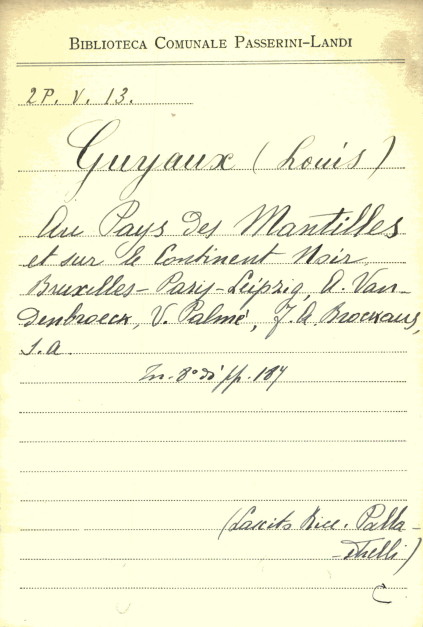 BIBLIOTECA COMUNALE PASSERINI-LANDI
2P. V. 13.
Guyaux (Louis)
Au Pays des Mantilles
et sur le Continent Noir.
Bruxelles-Paris-Leipzig, A. Van-
denbroeck, V. Palmé, J. A. Brockaus,
s.a.
In-8° di pp. 187
(Lascito Ricc. Palla-
-strelli)
C